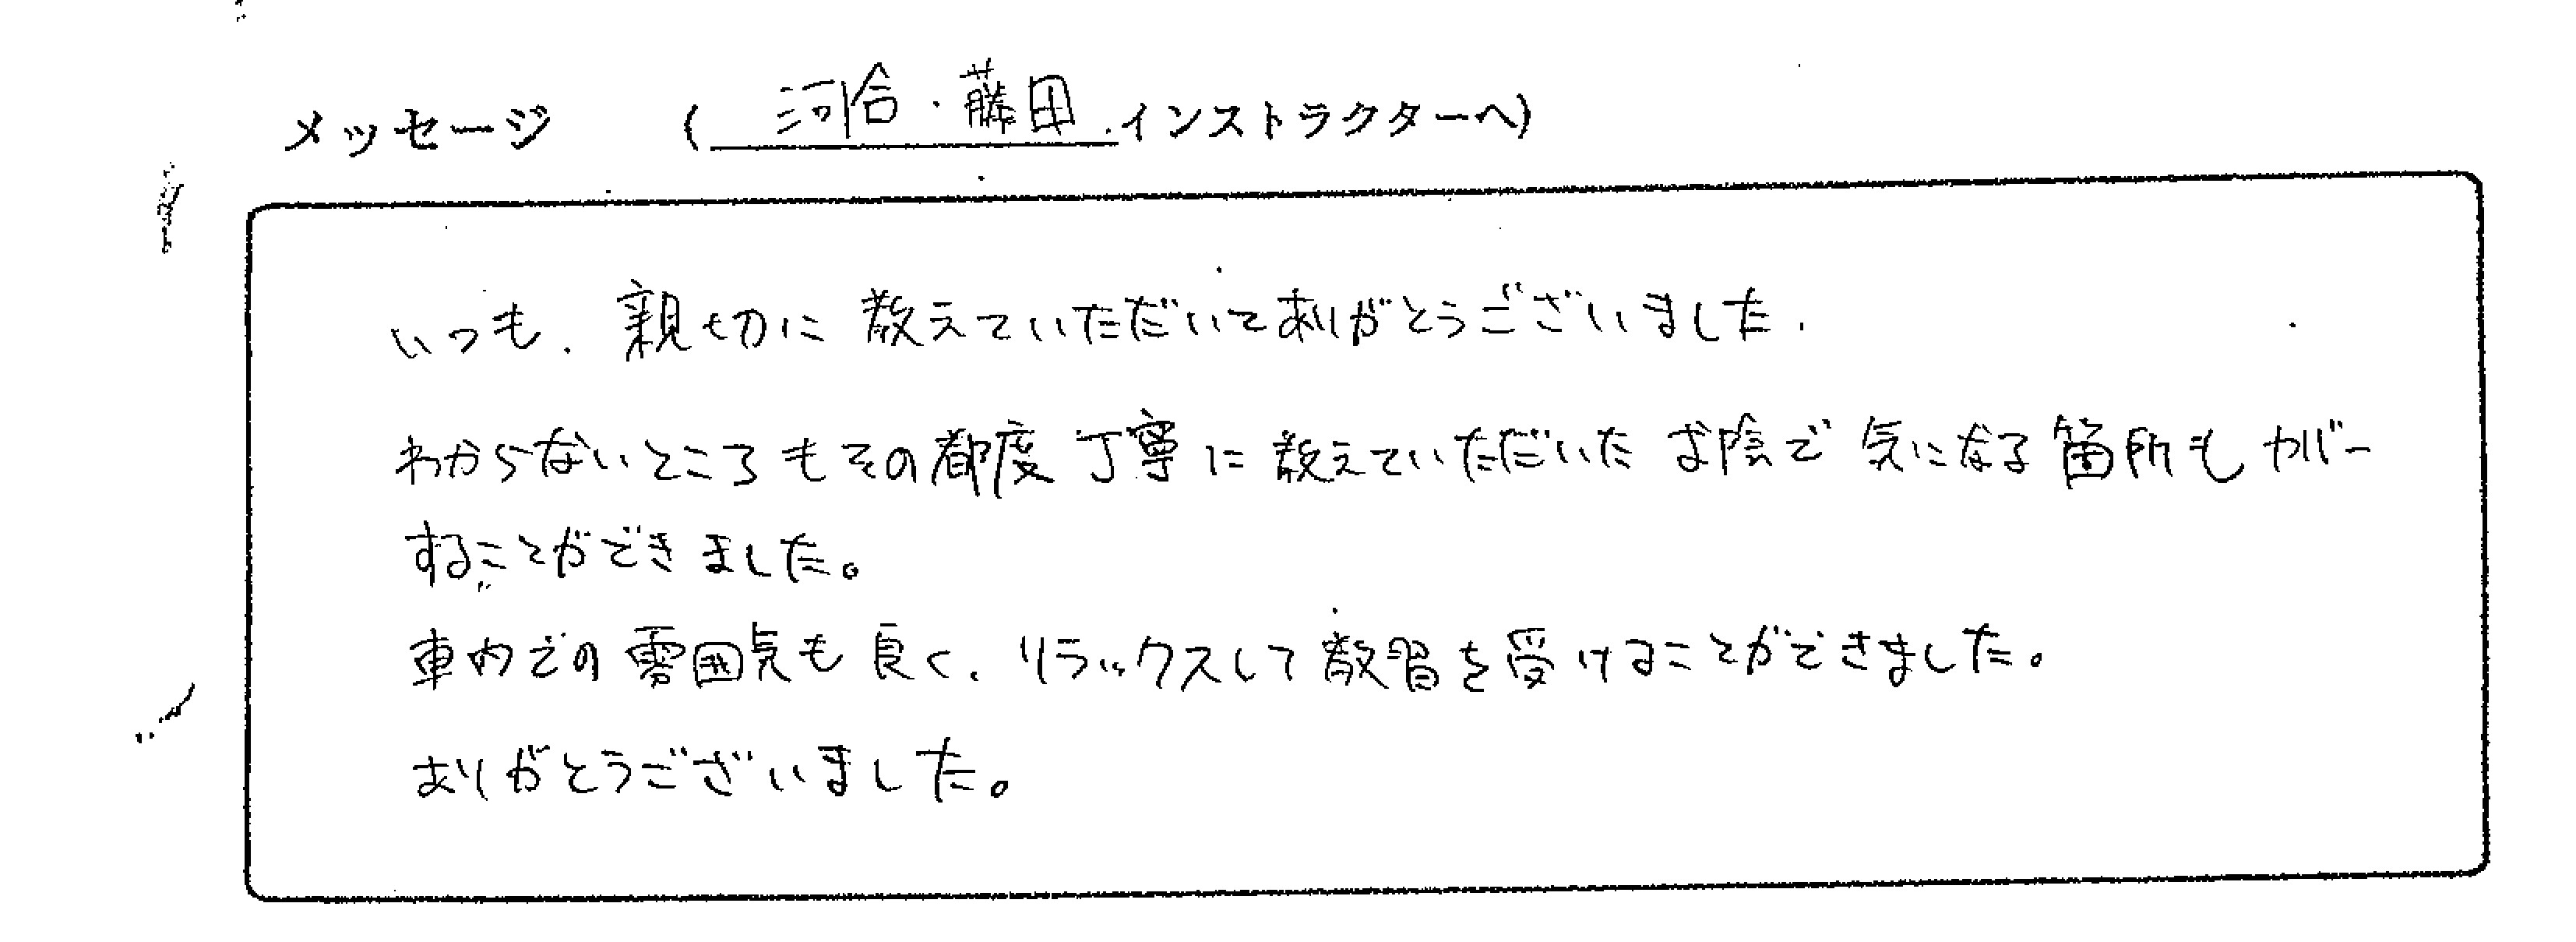 メッセージ （河合・藤田 インストラクターへ）
いつも、親切に教えていただいてありがとうございました。
わからないところもその都度丁寧に教えていただいたお陰で気になる箇所もカバー
することができました。
車内での雰囲気も良く、リラックスして教習を受けることができました。
ありがとうございました。